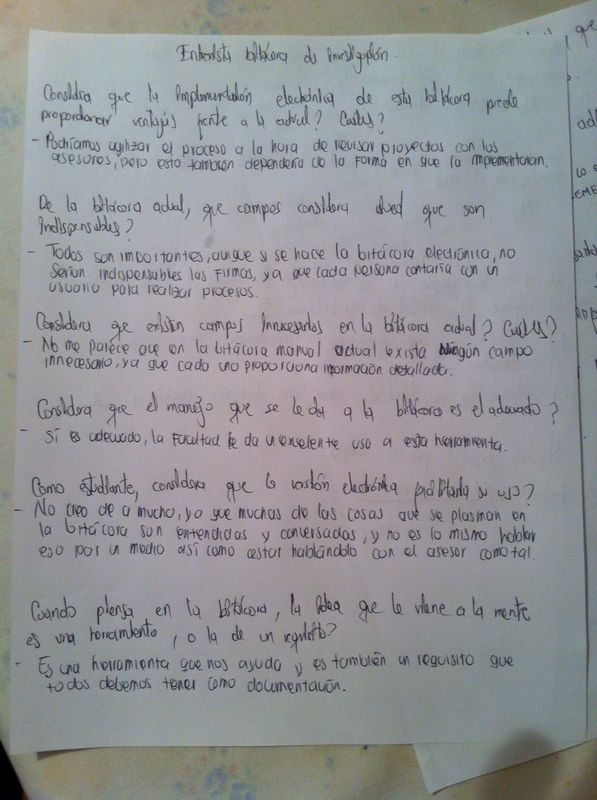 Entrevista bitácora de investigación.
Considera que la implementación electrónica de esta bitácora puede
proporcionar ventajas frente a la actual? Cuáles?
- Podríamos agilizar el proceso a la hora de revisar proyectos con los
asesores, pero esto también dependería de la forma en que la implementaran.
De la bitácora actual, que campos considera usted que son
indispensables?
- Todos son importantes, aunque si se hace la bitácora electrónica, no
serían indispensables las firmas, ya que cada persona contaría con un
usuario para realizar procesos.
Considera que existen campos innecesarios en la bitácora actual? Cuáles?
- No me parece que en la bitácora manual actual exista ningún campo
innecesario, ya que cada uno proporciona información detallada.
Considera que el manejo que se le da a la bitácora es el adecuado?
- Sí es adecuado, la Facultad le da un excelente uso a esta herramienta.
Como estudiante, considera que la versión electrónica facilitaría su uso?
- No creo de a mucho, ya que muchas de las cosas que se plasman en
la bitácora son entendidas y conversadas, y no es lo mismo hablar
eso por un medio así como estar hablándolo con el asesor como tal.
Cuando piensa en la bitácora, la idea que le viene a la mente
es una herramienta, o la de un requisito?
- Es una herramienta que nos ayuda y es también un requisito que
todos debemos tener como documentación.
que